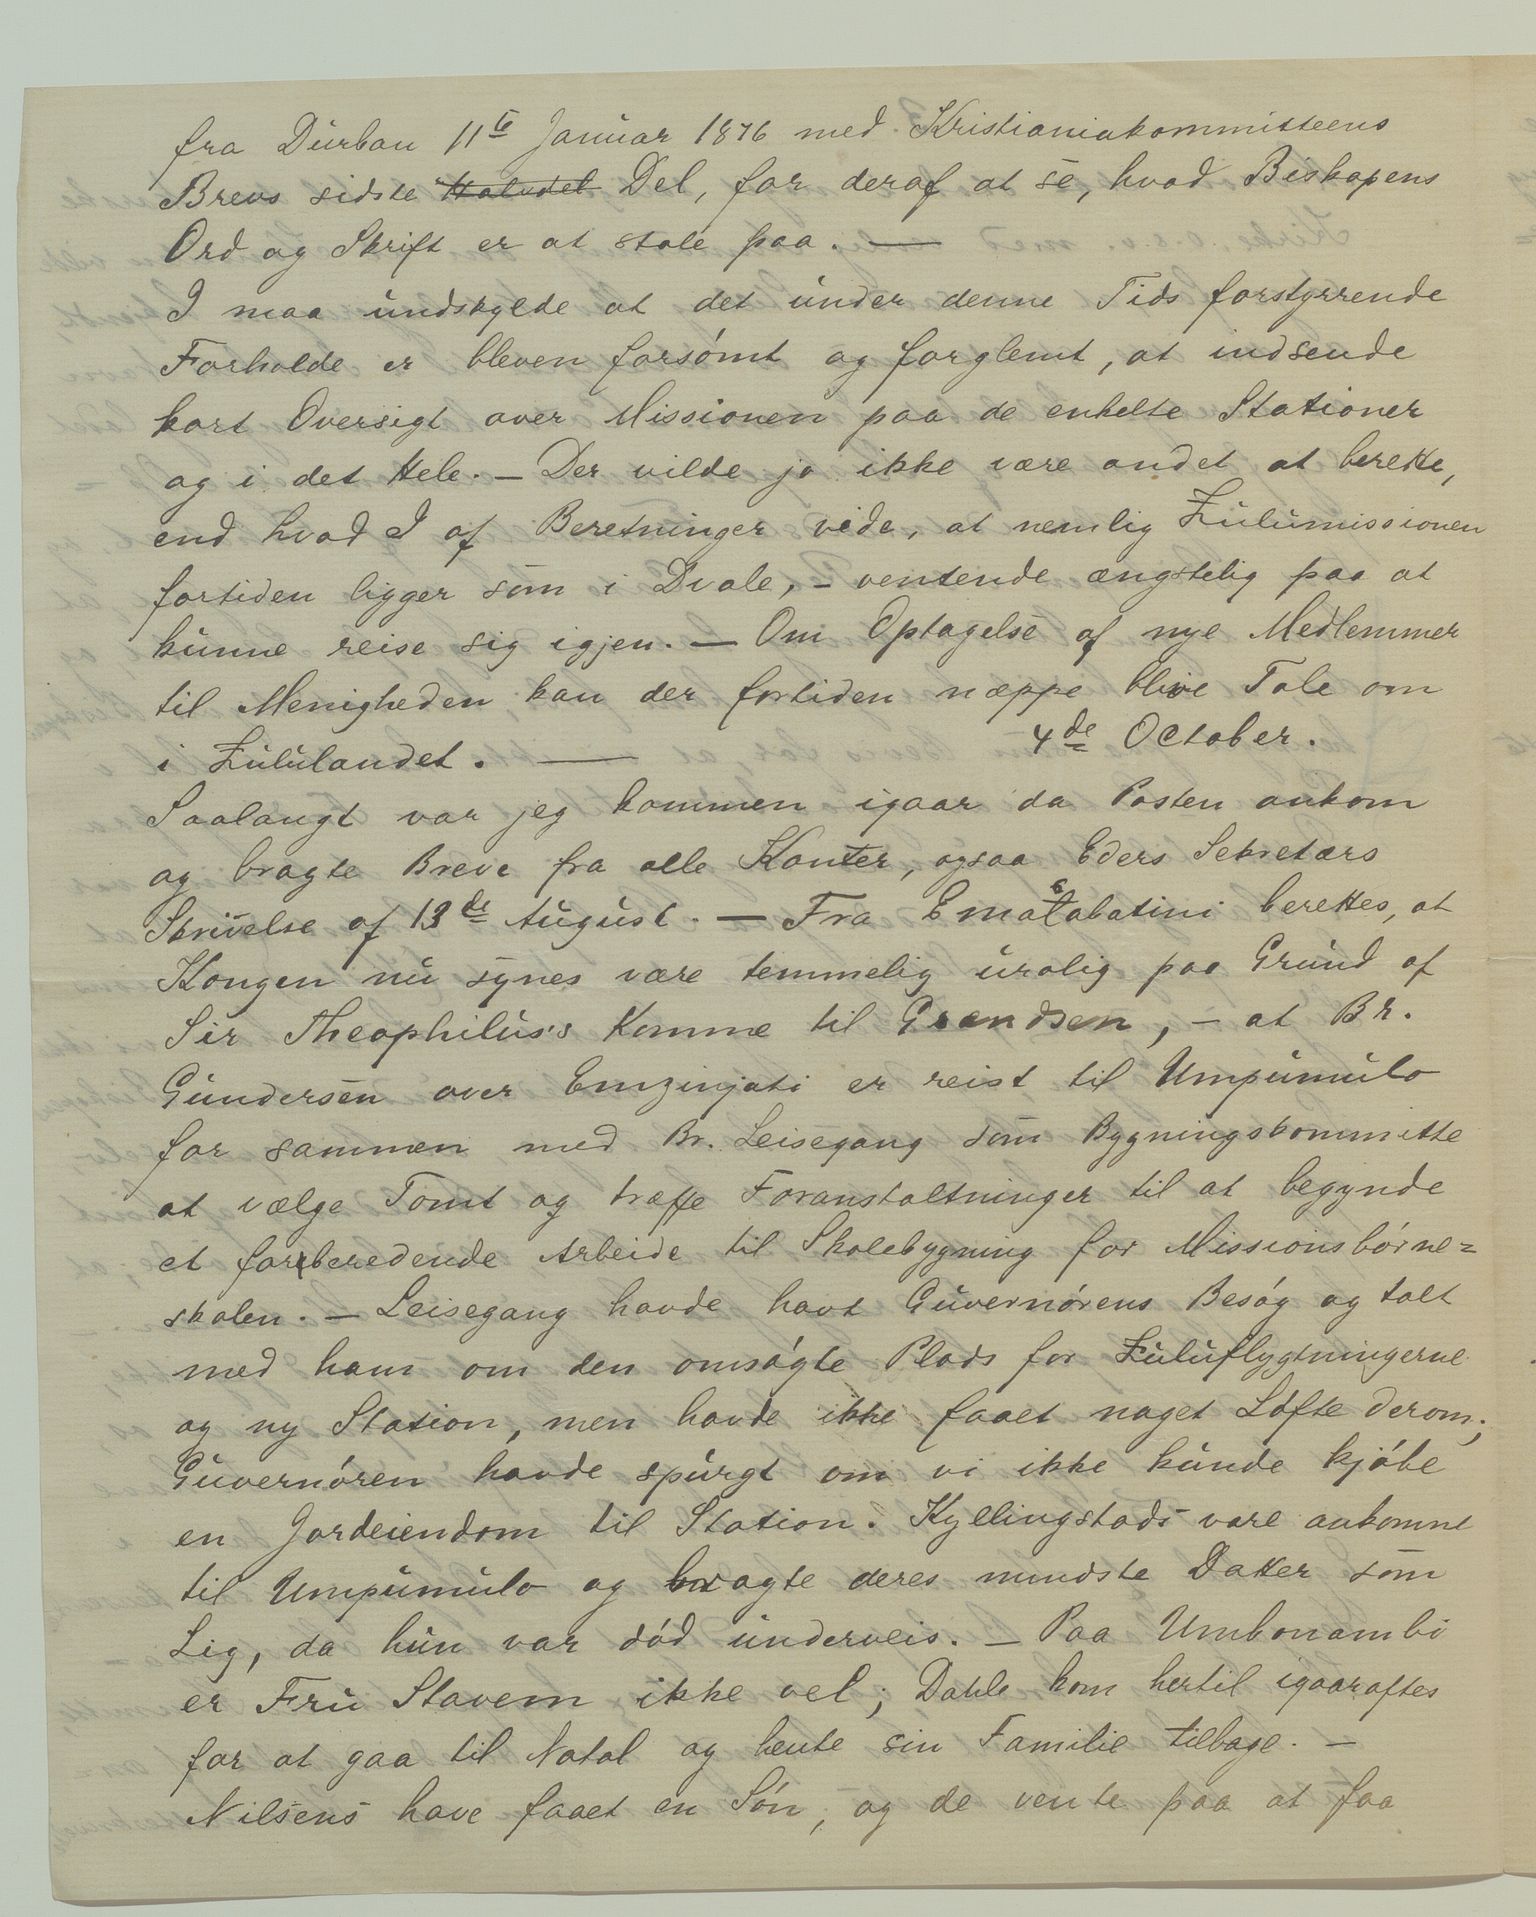 fra Durban 11te Januar 1876 med Kristianiakommitteens
Brevs sidste Halvdel Del, for deraf at se, hvad Biskopens
Ord og Skrift er at stole paa. —
I maa undskylde at det under denne Tids forstyrrende
Forholde er bleven forsømt og forglemt, at indsende
kort Oversigt over Missionen paa de enkelte Stationer
og i det Hele. — Der vilde jo ikke være andet at berette,
end hvad I af Beretninger vide, at nemlig Zulumissionen
fortiden ligger som i Dvale, – ventende ængstelig paa at
kunne reise sig igjen. — Om Optagelse af nye Medlemmer
til Menigheden kan der fortiden næppe blive Tale om
i Zululandet. — 4de October.
Saalangt var jeg kommen igaar da Posten ankom
og bragte Breve fra alle Kanter, ogsaa Eders Sekretærs
Skrivelse af 13de August. — Fra Emahlabatini berettes, at
Kongen nu synes være temmelig urolig paa Grund af
Sir Theophilus's Komme til Grændsen, – at Br.
Gundersen over Emzinjati er reist til Umpumulo
for sammen med Br. Leisegang som Bygningskommitte
at vælge Tomt og træffe Foranstaltninger til at begynde
et forberedende Arbeide til Skolebygning for Missionsbørne=
skolen. — Leisegang havde havt Guvernørens Besøg og talt
med ham om den omsøgte Plads for Zuluflygtningerne
og ny Station, men havde ikke faaet noget Løfte derom;
Guvernøren havde spurgt om vi ikke kunde kjøbe
en Jordeiendom til Station. Kyllingstads vare ankomne
til Umpumulo og bragte deres mindste Datter som
Lig, da hun var død underveis. — Paa Umbonambi
er Fru Stavem ikke vel; Dahle kom hertil igaaraftes
for at gaa til Natal og hente sin Familie tilbage. —
Nilsens have faaet en Søn, og de vente paa at faa